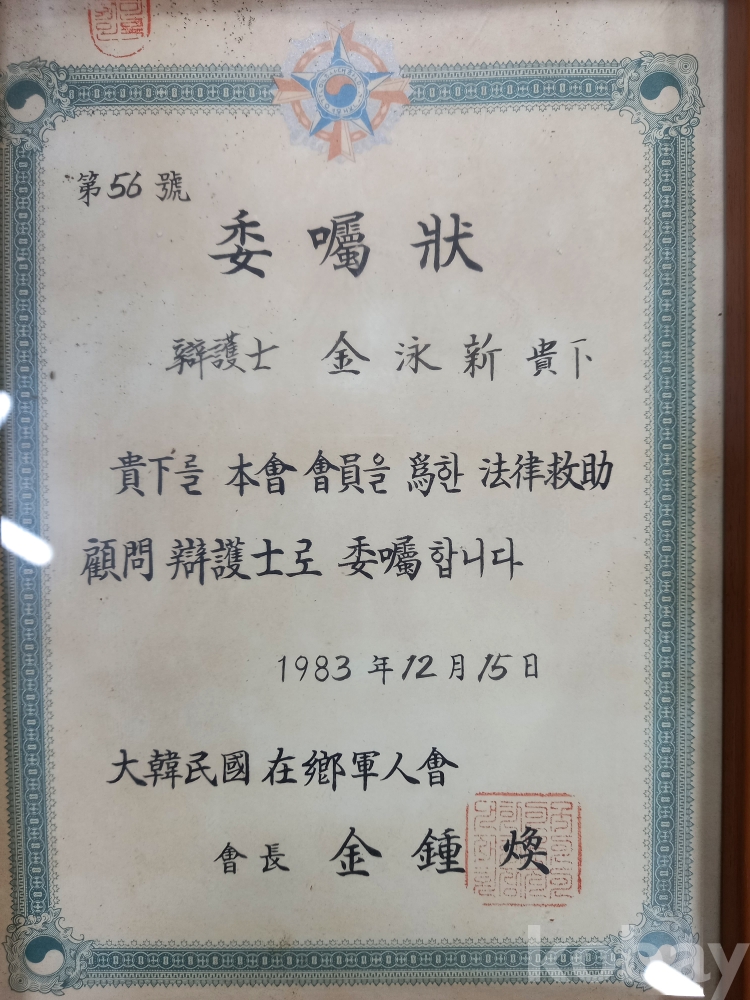 第56號
委囑狀
辯護士 金泳新 貴下
貴下를 本會 會員을 爲한 法律救助
顧問 辯護士로 委囑합니다
1983年12月15日
大韓民國在鄕軍人會
會長 金鍾煥
kobay